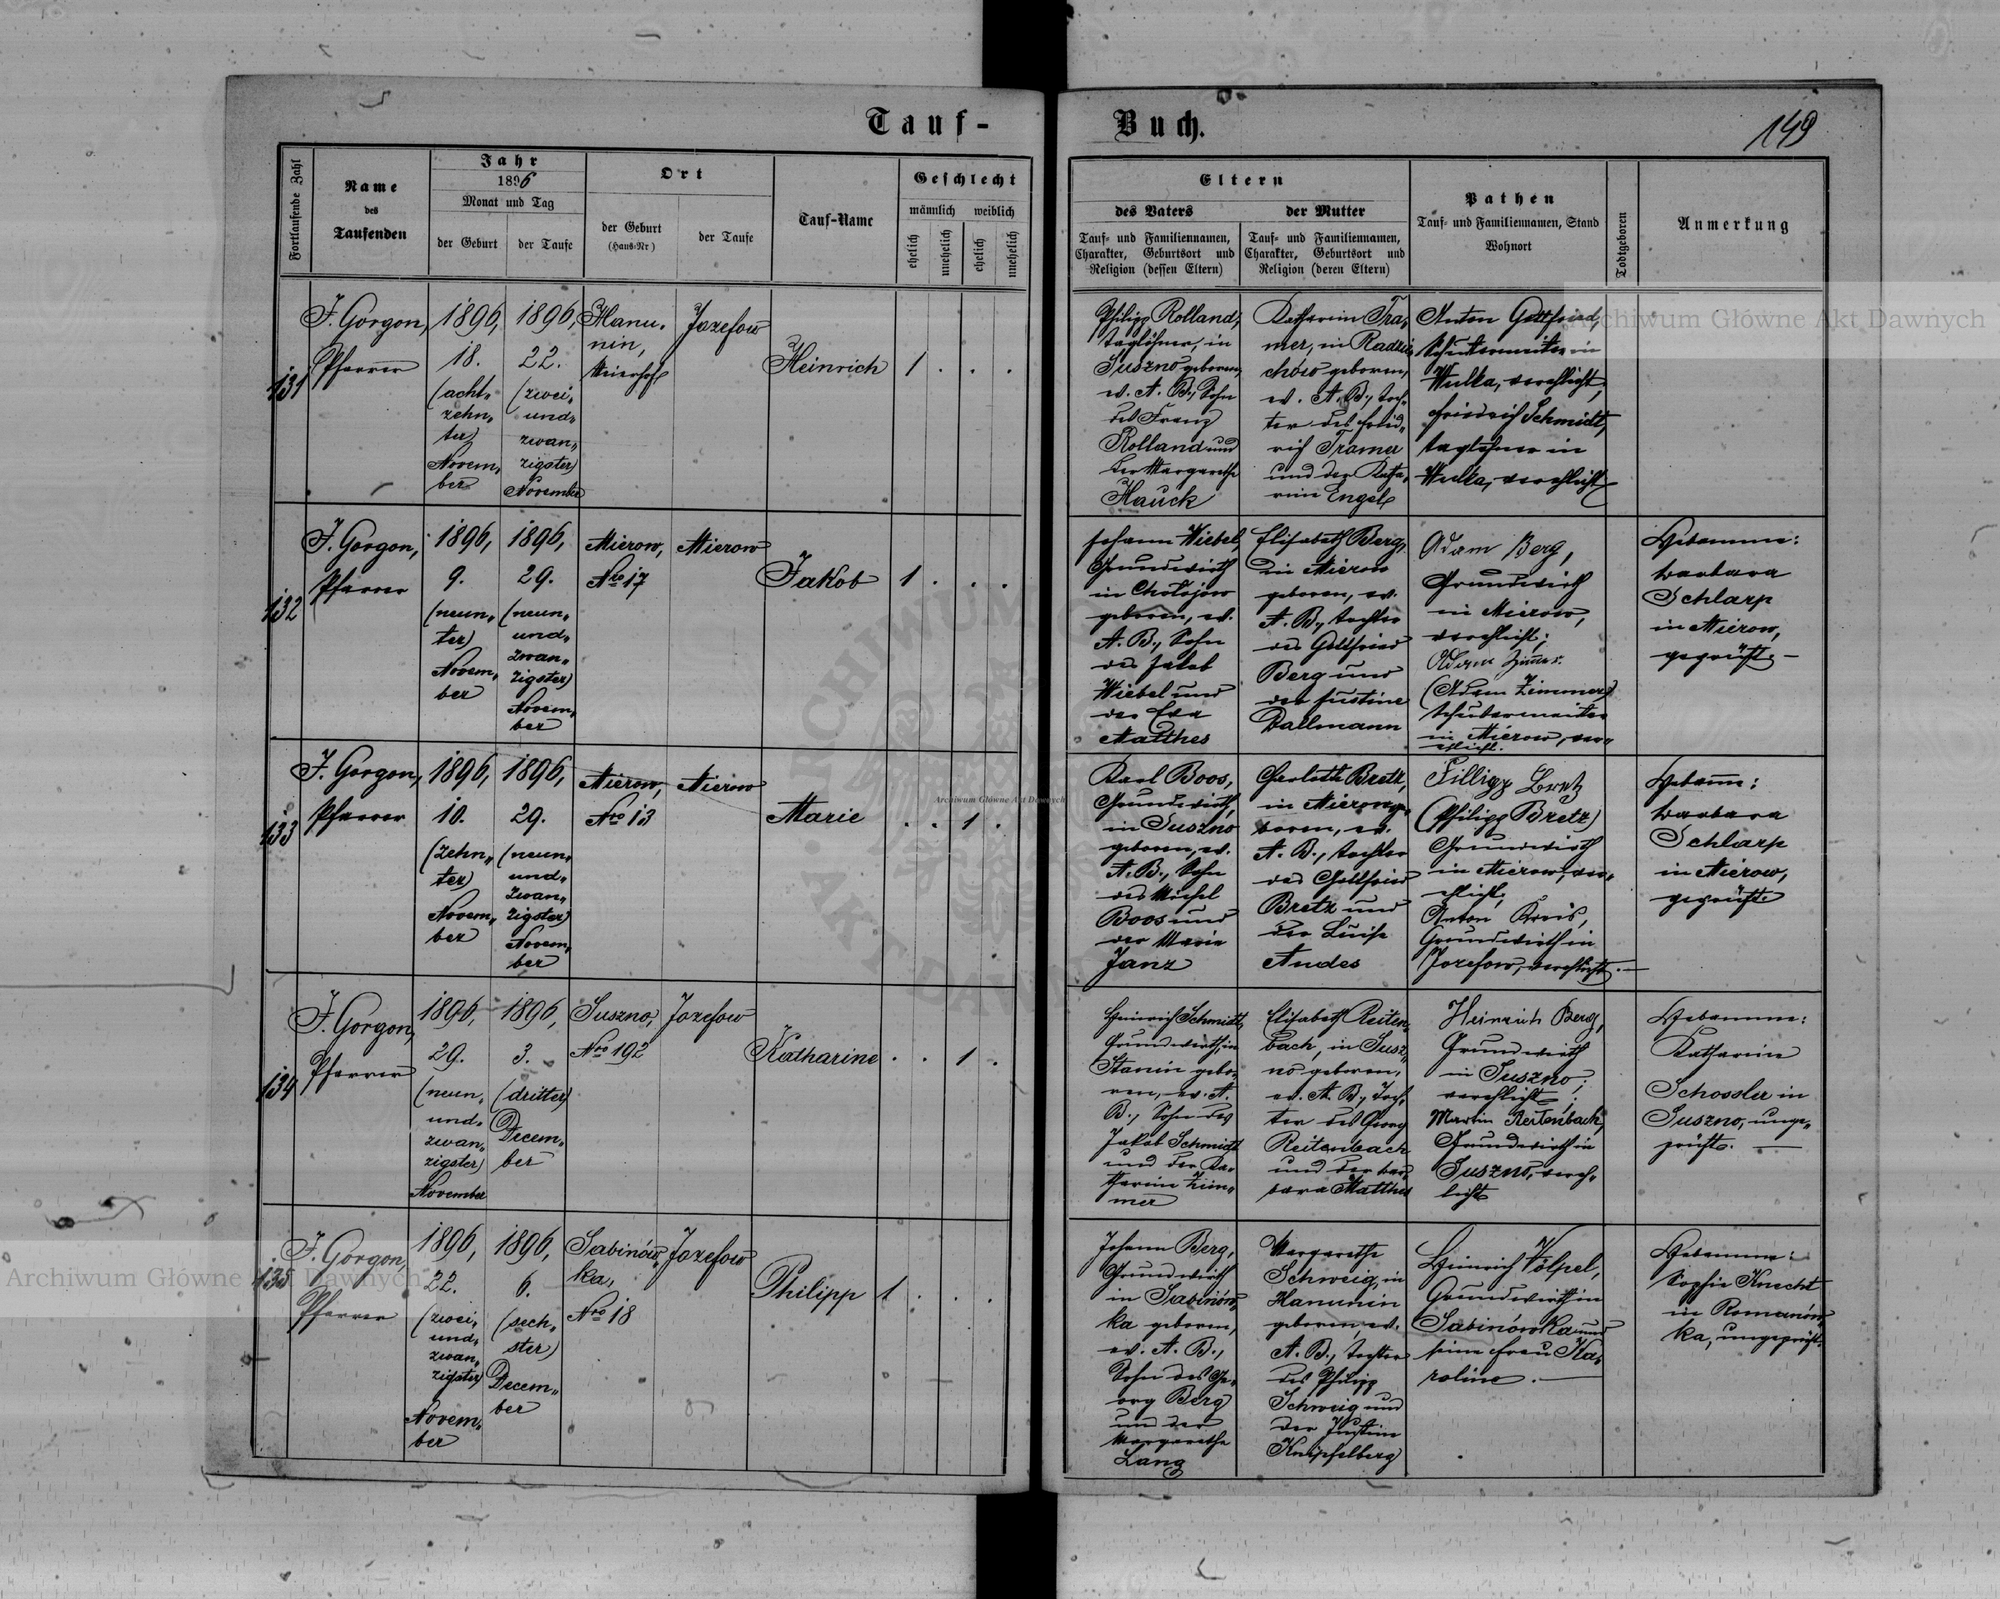 Tauf-
Buch.
149
Fortlaufende Zahl
Name
des
Taufenden
Jahr
1896
Monat und Tag
der Geburt
der Taufe
Ort
der Geburt
(Haus-Nr)
der Taufe
Tauf-Name
Geschlecht
männlich
weiblich
ehelich
unehelich
ehelich
unehelich
Eltern
des Vaters
Tauf- und Familiennamen,
Charakter, Geburtsort und
Religion (dessen Eltern)
der Mutter
Tauf- und Familiennamen,
Charakter, Geburtsort und
Religion (deren Eltern)
Pathen
Tauf- und Familiennamen, Stand
Wohnort
Todtgeboren
Anmerkung
131
J. Gorgon,
Pfarrer
1896,
18.
(acht-
zehn-
ter)
Novem-
ber
1896,
22.
(zwei-
und-
zwan-
zigster)
November
Hanu-
nin,
Meierhof
Jozefow
Heinrich
1 . . .
Philipp Rolland,
Taglöhner, in
Suszno geboren,
ev. A. B., Sohn
des Franz
Rolland und
der Margarethe
Hauck
Katharin Tra-
mer, in Radzie-
chów geboren,
ev. A. B., Toch-
ter des Fried-
rich Tramer
und der Katha-
rine Engel
Anton Gottfried,
in
Wulka, verehlicht,
Friedrich Schmidt,
Taglöhner in
Wulka, verehlicht
132
J. Gorgon,
Pfarrer
1896,
9.
(neun-
ter)
Novem-
ber
1896,
29.
(neun-
und-
zwan-
zigster)
Novem-
ber
Mierow,
Nro 17
Mierow
Jakob
1 . . .
Johann Wiebel,
Grundwirth
in Chołojów
geboren, ev.
A. B., Sohn
des Jakob
Wiebel und
der Eva
Matthes
Elisabeth Berg,
in Mierow
geboren, ev.
A. B., Tochter
des Gottfried
Berg und
der Justine
Dallmann
Adam Berg,
Grundwirth
in Mierow,
verehlicht;
Adam Zimer.
(Adam Zimmer)
in Mierow, ver-
ehlicht.
Hebamme:
Barbara
Schlarp
in Mierow,
geprüft. —
133
J. Gorgon,
Pfarrer
1896,
10.
(zehn-
ter)
Novem-
ber
1896,
29.
(neun-
und-
zwan-
zigster)
Novem-
ber
Mierow,
Nro 13
Mierow
Marie
. . 1 .
Karl Boos,
Grundwirth,
in Suszno
geboren, ev.
A. B., Sohn
des Michel
Boos und
der Marie
Janz
Charloth Bretz,
in Mierow ge-
boren, ev.
A. B., Tochter
des Gottfried
Bretz und
der Luise
Andes
Fillipp Bretz
(Philipp Bretz)
Grundwirth
in Mierow, ver-
ehlicht,
Anton Kreis,
Grundwirth in
Jozefow, verehlicht. —
Hebame:
Barbara
Schlarp
in Mierow,
geprüft.
134
J. Gorgon,
Pfarrer
1896,
29.
(neun-
und-
zwan-
zigster)
November
1896,
3.
(dritter)
Decem-
ber
Suszno,
Nro 192
Jozefow
Katharine
. . 1 .
Heinrich Schmidt,
Grundwirth, in
Stanin gebo-
ren, ev. A.
B., Sohn des
Jakob Schmidt
und der Ka-
tharin Zim-
mer
Elisabeth Reiten-
bach, in Susz-
no geboren,
ev. A. B., Toch-
ter des Georg
Reitenbach
und der Bar-
bara Matthes
Heinrich Berg,
Grundwirth
in Suszno,
verehlicht;
Martin Reitenbach,
Grundwirth in
Suszno, vereh-
licht
Hebamme:
Katharine
Schossler in
Suszno, unge-
prüft. —
135
J. Gorgon,
Pfarrer
1896,
22.
(zwei-
und-
zwan-
zigster)
Novem-
ber
1896,
6.
(sech-
ster)
Decem-
ber
Sabinów-
ka,
Nro 18
Jozefow
Philipp
1 . . .
Johann Berg,
Grundwirth
in Sabinów-
ka geboren,
ev. A. B.,
Sohn des Ge-
org Berg
und der
Margarethe
Lang
Margarethe
Schweig, in
Hanunin
geboren, ev.
A. B., Tochter
des Philipp
Schweig und
der Justine
Knipfelberg
Heinrich Völpel,
Grundwirth in
Sabinówka und
seine Frau Ka-
roline. —
Hebamme:
Sophie Knecht
in Romanów-
ka, ungeprüft.
Archiwum Główne Akt Dawnych
Archiwum Główne Akt Dawnych
Archiwum Główne Akt Dawnych